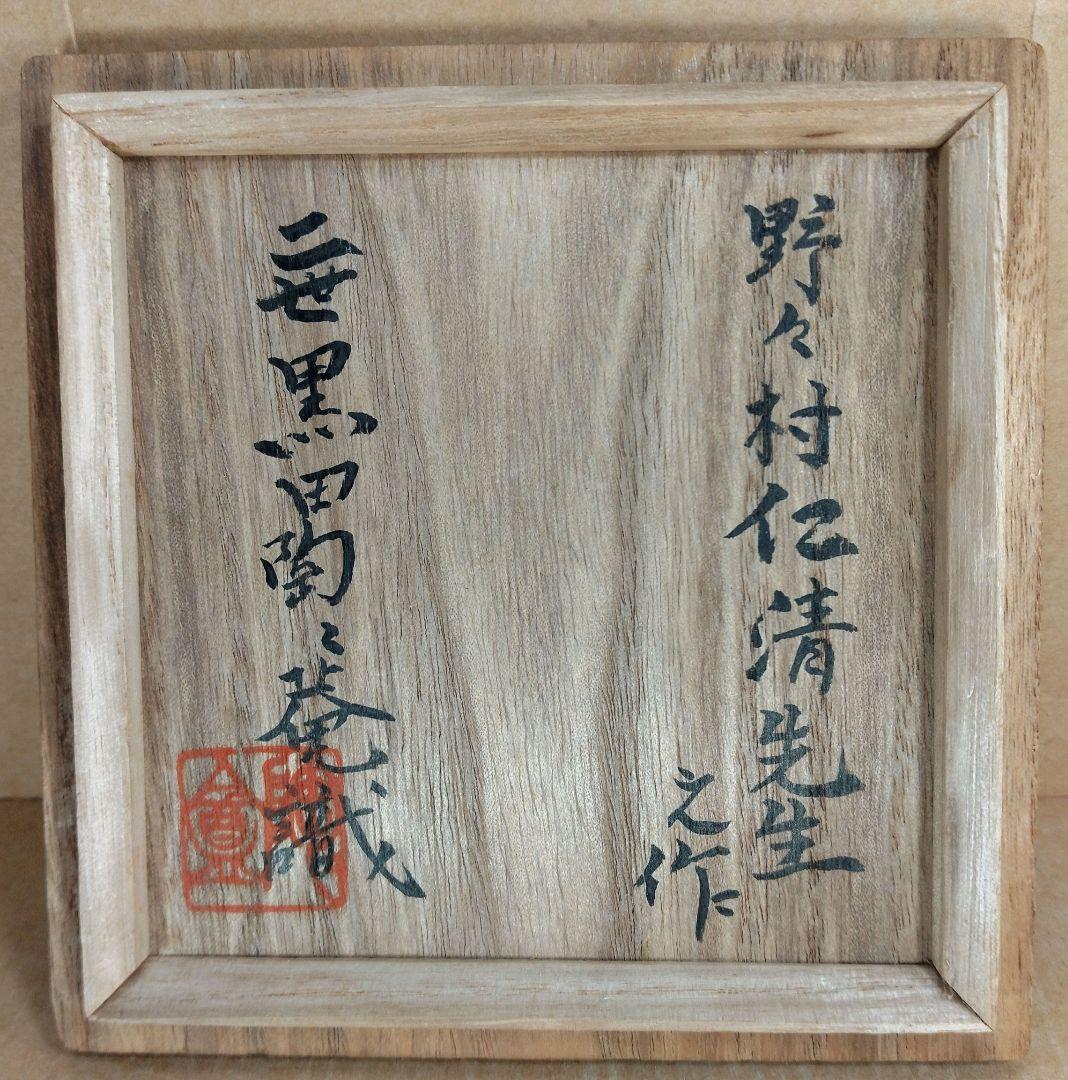 野々村仁清先生
之作
二世黒田陶々菴識